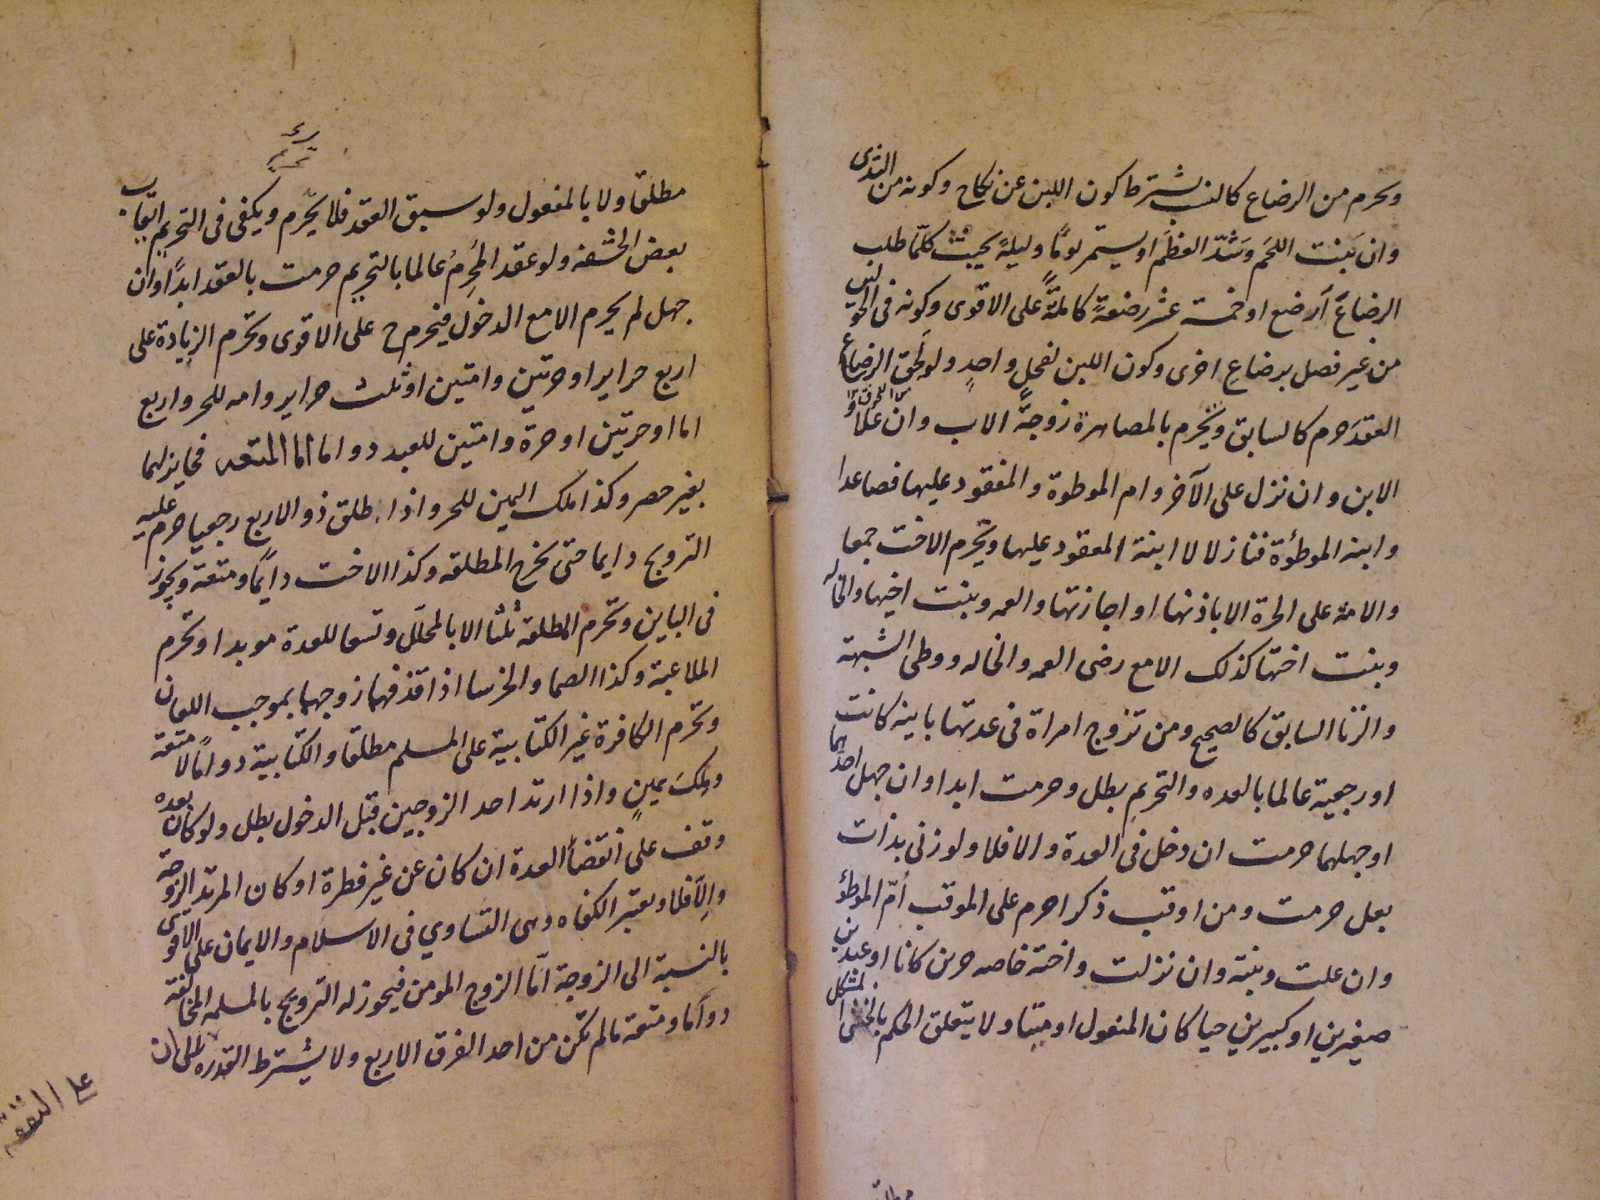 ويحرم من الرضاع كالنسب بشرط كون اللبن عن نكاح وكونه من الثدى
وان ينبت اللحم وتشد العظم او يستمر يوما وليلة بحيث كلما طلب
الرضاع ارضع او خمسة عشر رضعة كاملة على الاقوى وكونه فى الحولين
من غير فصل برضاع اخرى وكون اللبن لفحل واحد ولو لحق الرضاع
العقد حرم كالسابق ويحرم بالمصاهرة زوجة الاب وان علا و
الابن وان نزل على الآخر وام الموطوة والمعقود عليها فصاعدا
وابنة الموطؤة فنازلا لا ابنة المعقود عليها وتحرم الاخت جمعا
والامة على الحرة الا باذنها او اجازتها والعمه وبنت اخيها والخاله
وبنت اختها كذلك الا مع رضى العمه والخاله ووطى الشبهة
والزنا السابق كالصحيح ومن تزوج امراة فى عدتها باينه كانت
او رجعية عالما بالعده والتحريم بطل وحرمت ابدا وان جهل احدهما
او جهلهما حرمت ان دخل فى العدة والا فلا ولو زنى بذات
بعل حرمت ومن اوقب ذكرا حرم على الموقب أم الموطؤ
وان علت وبنته وان نزلت واخته خاصه حرين كانا او عبدين
صغيرين او كبيرين حيا كان المفعول او ميتا ولا يتعلق الحكم بالخنثى المشكل
مطلقا ولا بالمفعول ولو سبق العقد فلا يحرم ويكفى فى التحريم ايقاب
بعض الحشفه ولو عقد المحرم عالما بالتحريم حرمت بالعقد ابدا وان
جهل لم يحرم الا مع الدخول فيحرم ح على الاقوى وتحرم الزيادة على
اربع حراير او حرتين وامتين او ثلث حراير وامه للحر واربع
اما او حرتين او حرة وامتين للعبد دواما اما المتعه فجايز لهما
بغير حصر وكذا ملك اليمين للحر واذا طلق ذو الاربع رجعيا حرم عليه
التزويج دايما حتى تخرج المطلقه وكذا الاخت دايما ومتعة ويجوز
فى الباين وتحرم المطلقة ثلثا الا بالمحلل وتسعا للعدة موبدا وتحرم
الملاعبة وكذا الصما والخرسا اذا قذفهما زوجهما بموجب اللعان
وتحرم الكافرة غير الكتابية على المسلم مطلقا والكتابية دواما لا متعة
وملك يمين واذا ارتد احد الزوجين قبل الدخول بطل ولو كان بعده
وقف على انقضأ العدة ان كان عن غير فطرة او كان المرتد الزوجة
وإلا فلا ويعتبر الكفاه وهى التساوي فى الاسلام والايمان على الاقوى
بالنسبة الى الزوجة اما الزوج المومن فيجوز له التزويج بالمسلمه المخالفة
دواما ومتعة مالم تكن من احد الفرق الاربع ولا يشترط القدره
على النفقة